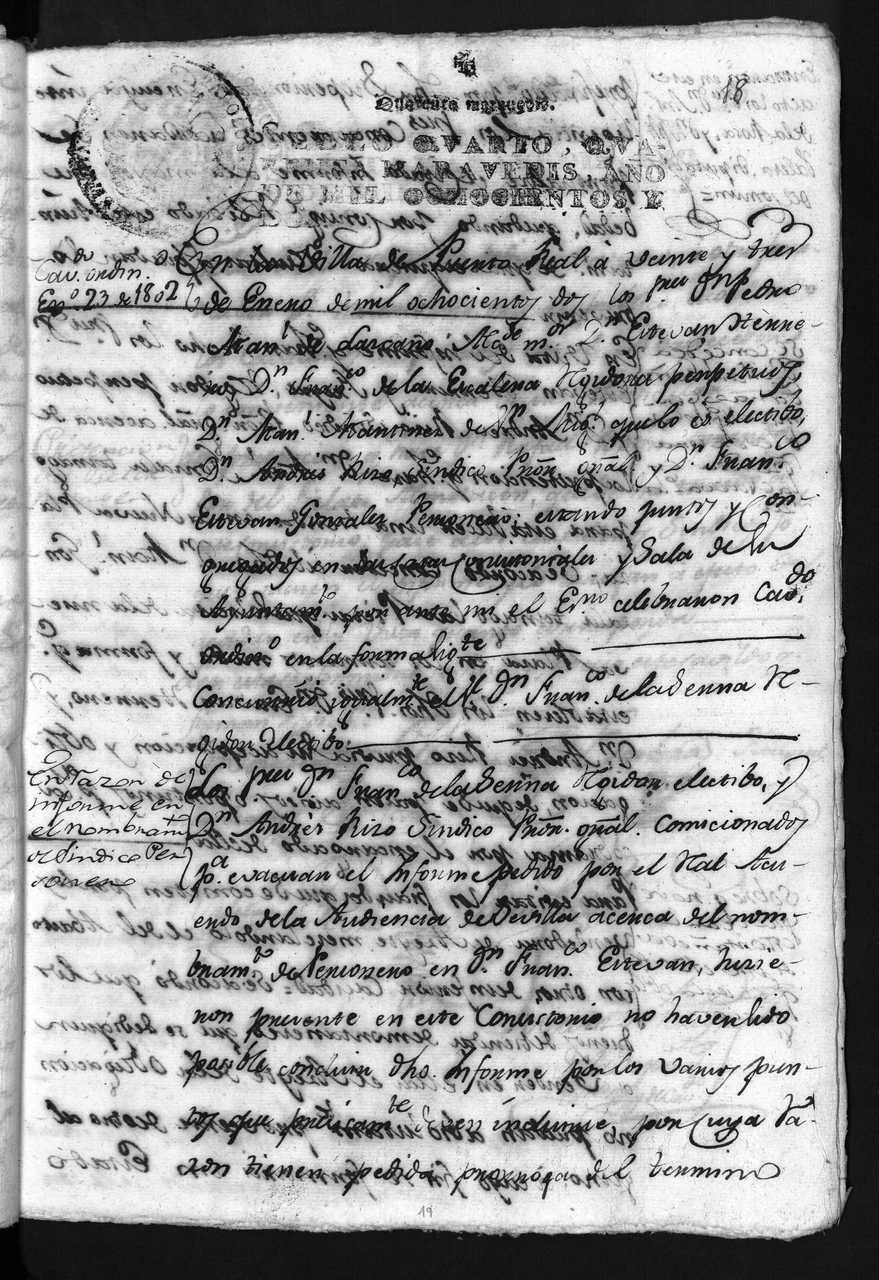 18
Quarenta maravedis.
SELLO QVARTO, QVA-
RENTA MARAVEDIS, AÑO
DE MIL OCHOCIENTOS Y
Cav.do ordin.
En.o 23 de 1802
En la Villa de Puerto Real à veinte y tres
de Enero de mil ochocientos dos los Sres Dn Pedro
Man.l de Lazcano, Estevan Henne-
Dn Fran.co de la Regidores perpetuos,
Dn Man.l Martinez de que lo es electibo,
Dn Andres Rizo Sindico Pròr. gral y Dn Fran.co
Estevan Gonzalez Personero; estando juntos y con-
gregados en las casas Consistoriales y Sala de su
Ayuntam.to por ante mi el Esno celebraron Cavdo
ordin.o en la forma sigte
Concurriò igualm.te el Sr Dn Fran.co de la Serna Re-
gidor electibo
En razon de
informe en
el nombram.to
de Sindico Per
sonero
Los Sres Dn Fran.co de la Serna Regidor electibo, y
Dn Andrès Rizo Sindico Pròr. gral. comicionados
pa. evacuar el Informe pedido por el Rl Acu-
erdo de la Audiencia de Sevilla acerca del nom-
bram.to de Personero en Dn Fran.co Estevan, hizie-
ron presente en este Consistorio no haver sido
posible concluir dho. Informe por los varios pun-
tos que deven incluirse, por cuya ra-
zon tienen pedido prorroga del termino
19